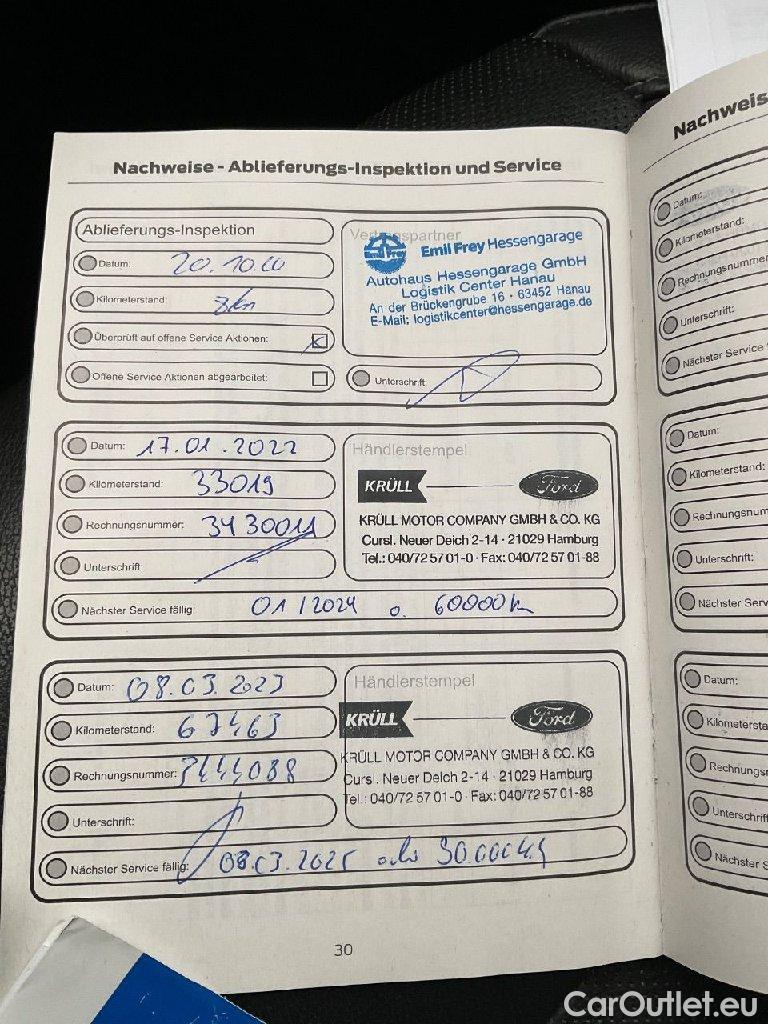 Nachweise - Ablieferungs-Inspektion und Service
Ablieferungs-Inspektion
Datum: 20.10.20
Kilometerstand: 8km
Überprüft auf offene Service Aktionen:
Offene Service Aktionen abgearbeitet:
Vertragspartner
Emil Frey
Emil Frey Hessengarage
Autohaus Hessengarage GmbH
Logistik Center Hanau
An der Brückengrube 16 · 63452 Hanau
E-Mail: logistikcenter@hessengarage.de
Unterschrift
Datum: 17.01.2022
Kilometerstand: 33019
Rechnungsnummer: 3430011
Unterschrift
Händlerstempel
KRÜLL
Ford
KRÜLL MOTOR COMPANY GMBH & CO. KG
Cursl. Neuer Deich 2-14 · 21029 Hamburg
Tel.: 040/72 57 01-0 · Fax: 040/72 57 01-88
Nächster Service fällig: 01/2024 o. 60000km
Datum: 08.03.2023
Kilometerstand: 67463
Rechnungsnummer:
Unterschrift:
Händlerstempel
KRÜLL
Ford
KRÜLL MOTOR COMPANY GMBH & CO. KG
Curs. Neuer Deich 2-14 · 21029 Hamburg
Tel.: 040/72 57 01-0 · Fax: 040/72 57 01-88
Nächster Service fällig: 08.03.2025
30
Nachweis
Datum:
Kilometerstand:
Rechnungsnummer
Unterschrift:
Nächster Service
Datum:
Kilometerstand:
Rechnungsnum
Unterschrift:
Nächster Serv
Datum:
Kilometersta
Rechnungs
Unterschrift
Nächster S
CarOutlet.eu